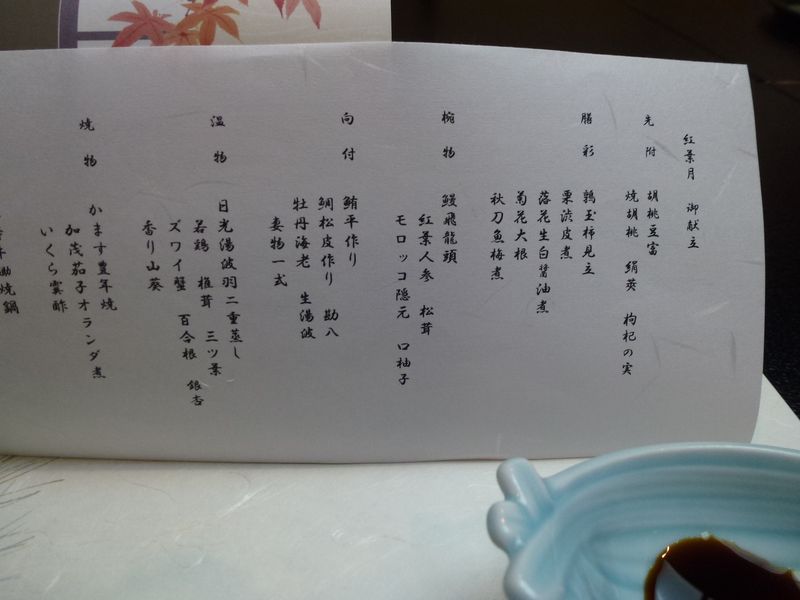 紅葉月 御献立
先附 胡桃豆富
焼胡桃 絹莢 枸杞の実
膳彩 鶉玉柿見立
栗渋皮煮
落花生白醤油煮
菊花大根
秋刀魚梅煮
椀物 鰻飛龍頭
紅葉人参 松茸
モロッコ隠元 口柚子
向付 鮪平作り
鯛松皮作り 勘八
牡丹海老 生湯波
妻物一式
温物 日光湯波羽二重蒸し
若鶏 椎茸 三ツ葉
ズワイ蟹 百合根 銀杏
香り山葵
焼物 かます豊年焼
加茂茄子オランダ煮
いくら霙酢
鋤焼鍋